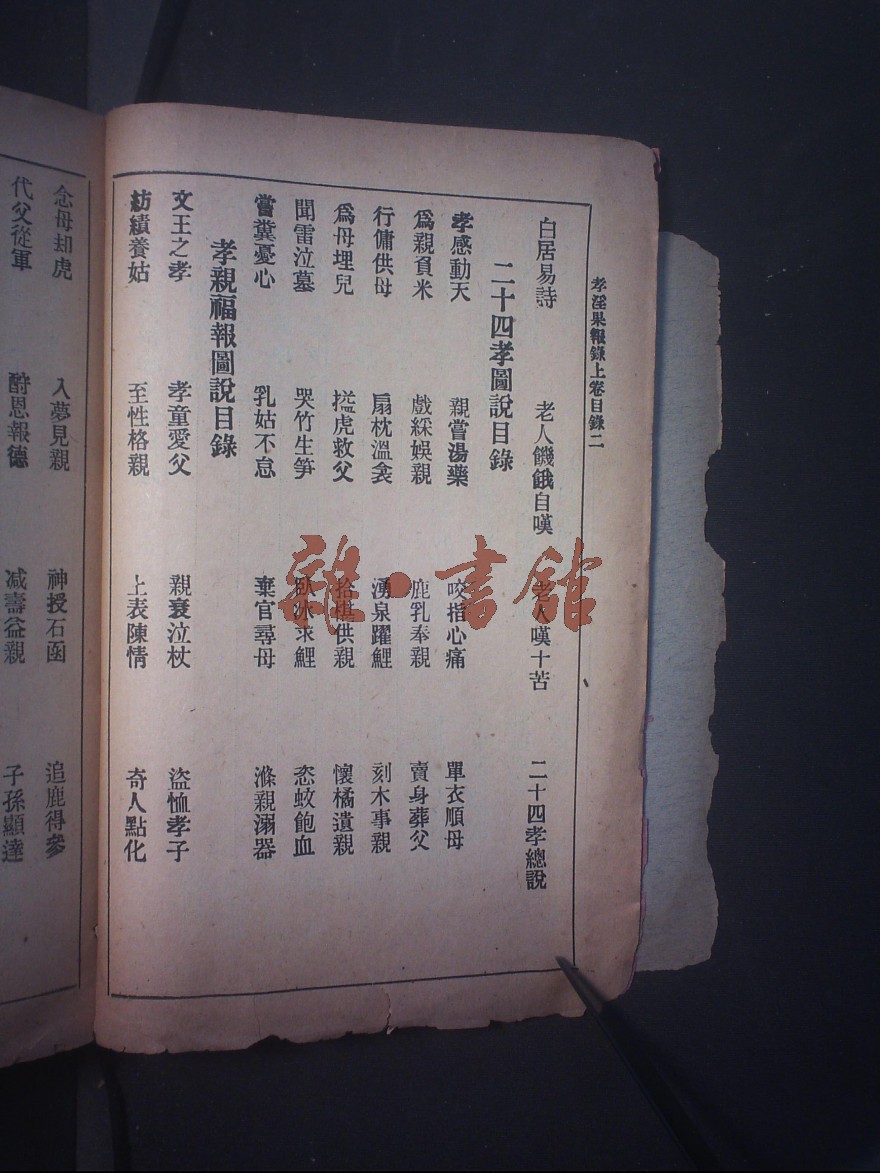 孝淫果報錄上卷目錄二
白居易詩 老人饑餓自嘆 老人嘆十苦 二十四孝總說
二十四孝圖說目錄
孝感動天 親嘗湯藥 咬指心痛 單衣順母
爲親負米 戲綵娛親 鹿乳奉親 賣身葬父
行傭供母 扇枕溫衾 湧泉躍鯉 刻木事親
爲母埋兒 搤虎救父 拾椹供親 懷橘遺親
聞雷泣墓 哭竹生笋 臥冰求鯉 恣蚊飽血
嘗糞憂心 乳姑不怠 棄官尋母 滌親溺器
孝親福報圖說目錄
文王之孝 孝童愛父 親衰泣杖 盜恤孝子
紡績養姑 至性格親 上表陳情 奇人點化
念母却虎 入夢見親 神授石函 追鹿得參
代父從軍 酧恩報德 减壽益親 子孫顯達
雜·書館